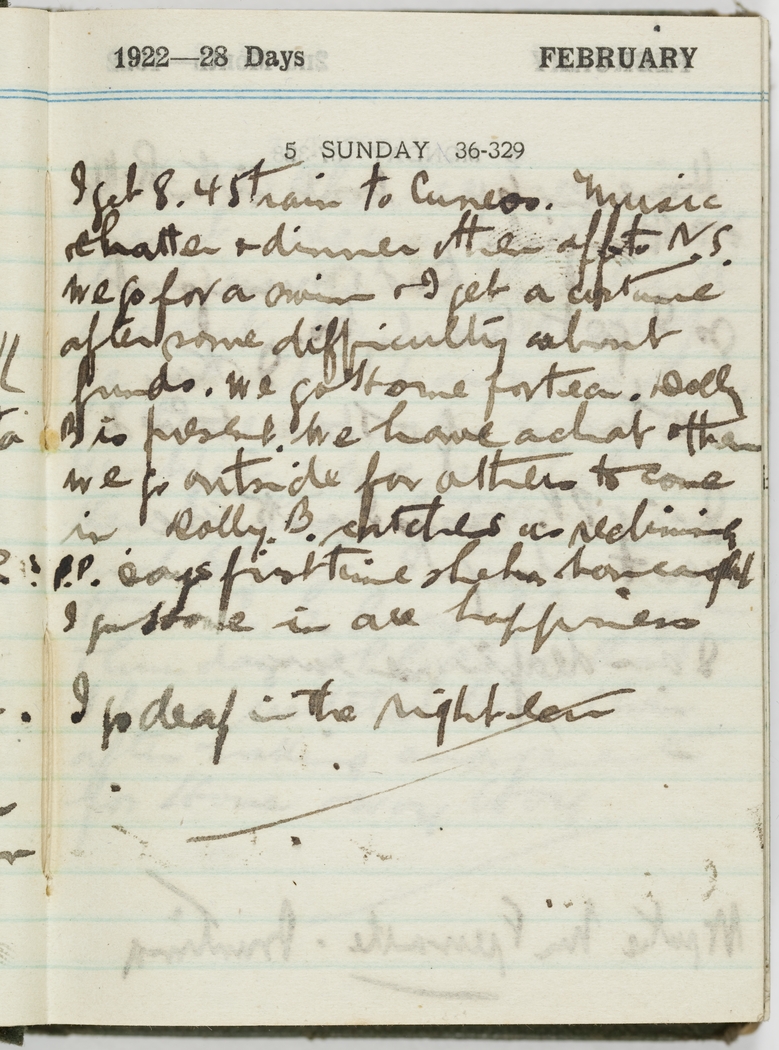 1922—28 Days FEBRUARY
5 SUNDAY 36-329
I get 8.45 train to Cuneos. Music
chatter & dinner & then off to N.S.
We go for a swim & I get a costume
after some difficulty about
funds. We go home for tea. Dolly
B is present. We have a chat & then
we go outside for others to come
in Dolly. B. catches us reclining
P.P. says first time she has
I go home in all happiness
I go deaf in the right ear